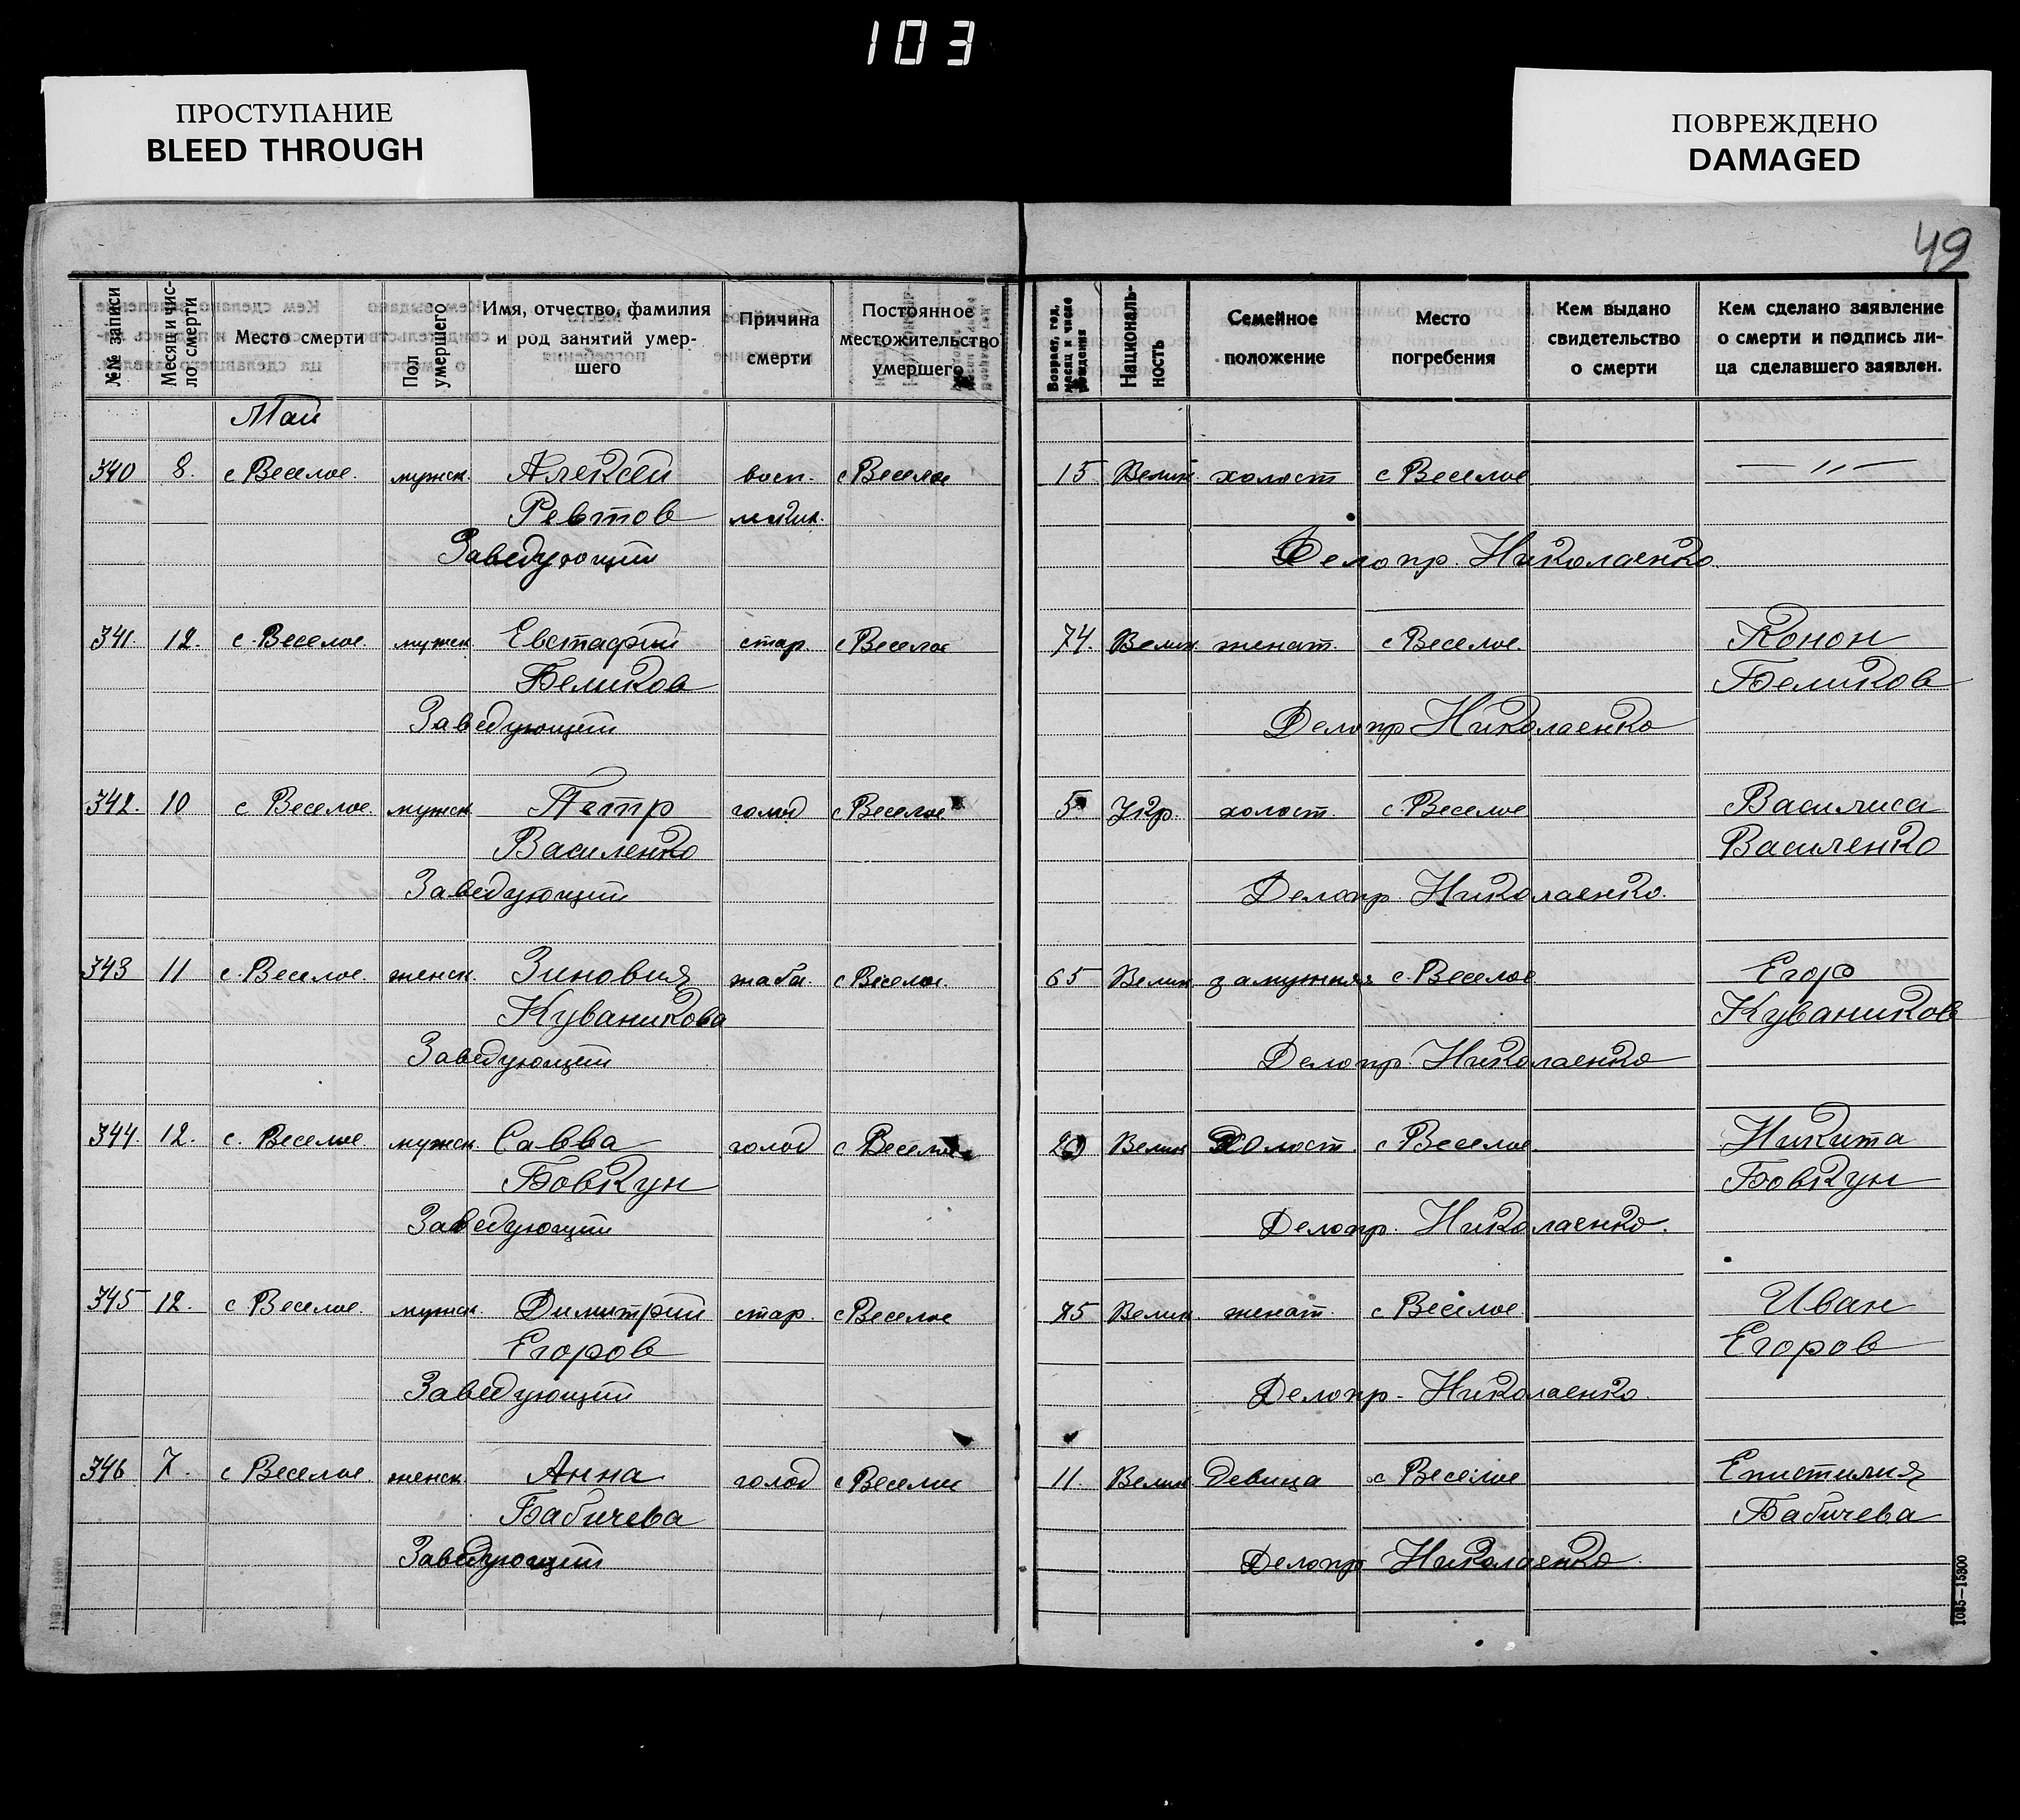 103
ПРОСТУПАНИЕ
BLEED THROUGH
ПОВРЕЖДЕНО
DAMAGED
49
№№ записи
Месяц и чис-
ло смерти
Место смерти
Пол
умершего
Имя, отчество, фамилия
и род занятий умер-
шего
Причина
смерти
Постоянное
местожительство
умершего
Возраст, год,
месяц и число
рождения
Националь-
ность
Семейное
положение
Место
погребения
Кем выдано
свидетельство
о смерти
Кем сделано заявление
о смерти и подпись ли-
ца сделавшего заявлен.
Май
340 8. с Веселое. мужск. Алексей восп. с Веселое 15 Велик. холост с Веселое — 〃 —
Ревтов
Заведующий Делопр. Николаенко.
341. 12. с. Веселое. мужск. Евстафий стар. с Веселое 74. Велик. женат. с Веселое. Конон
Беликов Беликов
Заведующий Делопр Николаенко
342. 10 с Веселое. мужск. Петр голод с Веселое 5 Укр. холост. с. Веселое Василиса
Василенко Василенко
Заведующий Делопр. Николаенко.
343 11 с. Веселое. женск. Зиновия с Веселое. 65 Велик. замужняя с. Веселое Егор
Куваникова Куваников
Заведующий Делопр. Николаенко
344. 12. с. Веселое. мужск. Савва голод с Веселое 20 Велик холост. с Веселое. Никита
Бовкун Бовкун
Заведующий Делопр. Николаенко.
345 12. с Веселое. мужск. Димитрий стар. с Веселое 75 Велик. женат. с Веселое. Иван
Егоров Егоров
Заведующий Делопр- Николаенко.
346 7. с Веселое. женск. Анна голод с Веселое 11. Велик девица с Веселое Епистилия
Бабичева Бабичева
Заведующий Делопр Николаенко.
1085—15300